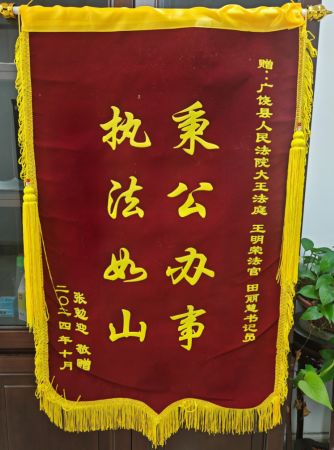 赠：广饶县人民法院大王法庭 王明荣法官 田丽慧书记员
秉公办事
执法如山
张迎迎 敬赠
二〇二四年十月